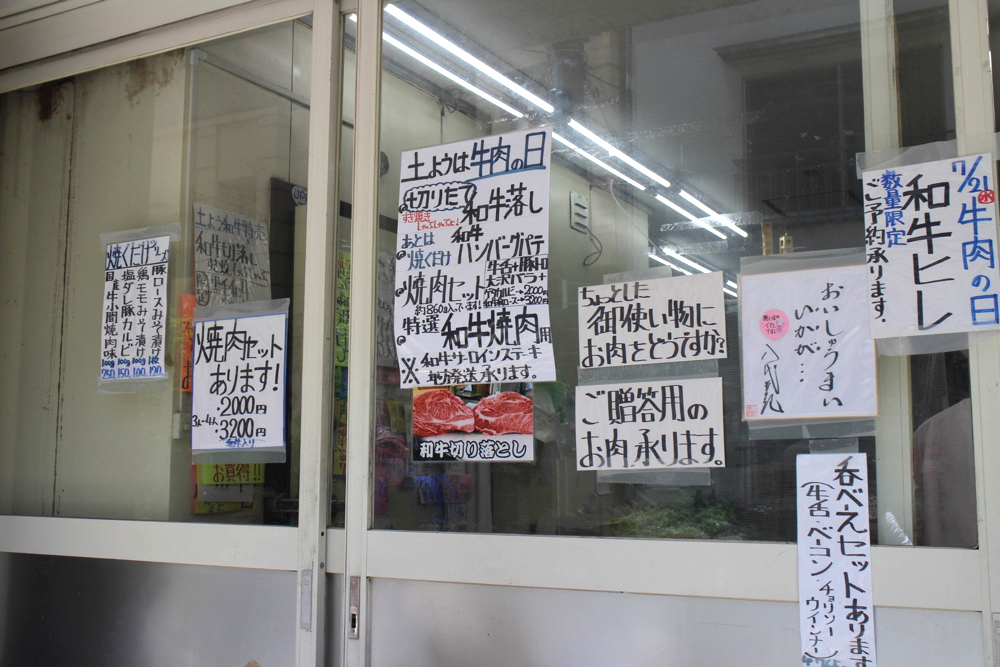 焼くだけシリーズ
豚ロースみそ漬け 1枚 190
鶏モモみそ漬け 100g 100
塩ダレ豚カルビ 100g 150
国産牛層焼肉味 100g 250
土よう和牛特売
和牛切り落し
焼肉セット
あります!
・2000円
3人〜4人
・3200円
和牛入り
お買得!!
土ようは牛肉の日
切りたて
すき焼き
しゃぶしゃぶに!
和牛落し
あとは
焼くだけ
和牛
ハンバーグパテ
焼肉セット
牛舌+豚トロ
大判バラ+
ゲタカルビ→2000円
和牛肩ロース→3200円
約860g入ってます!
特選 和牛焼肉用
※和牛サーロインステーキ
※地方発送承ります。
和牛切り落とし
ちょっとした
御使い物に
お肉をどうですか?
ご贈答用の
お肉承ります。
おいしゅうまい
いかが…
7/21
水
牛肉の日
和牛ヒレ
数量限定
ご予約承ります。
呑べえセットあります
(牛舌・ベーコン チョリソー
ウインナー)